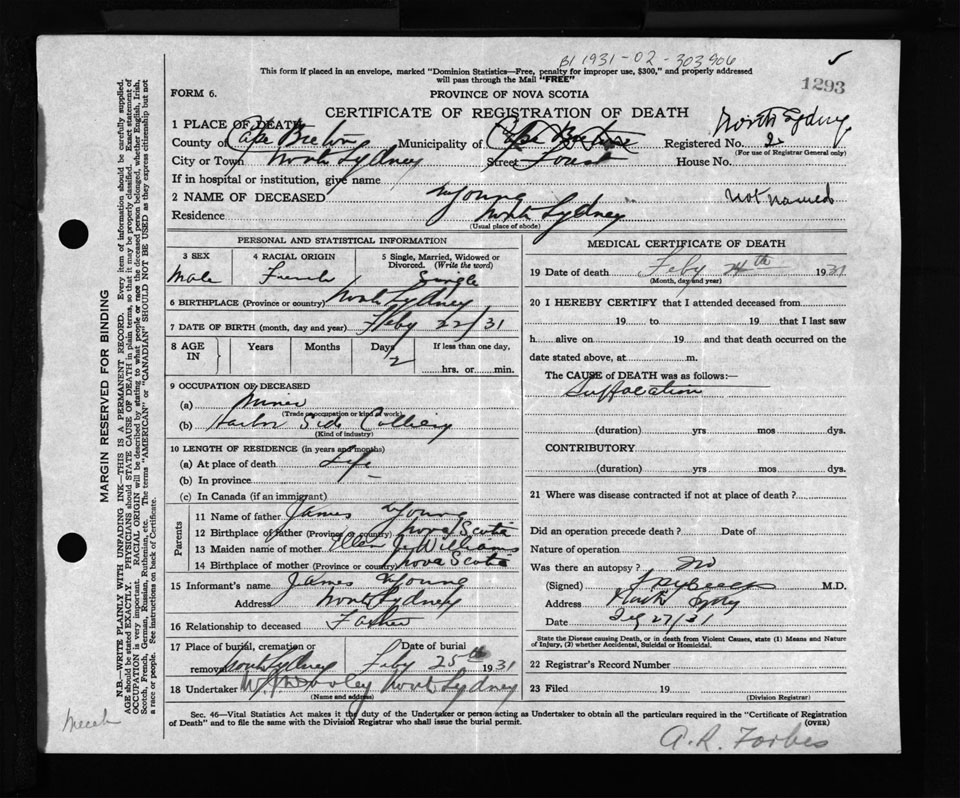 B1 1931-02-303906
This form if placed in an envelope, marked "Dominion Statistics—Free, penalty for improper use, $300," and properly addressed
will pass through the Mail "FREE"
1293
FORM 6.
PROVINCE OF NOVA SCOTIA
CERTIFICATE OF REGISTRATION OF DEATH
North Sydney
1 PLACE OF DEATH
County of Cape Breton Municipality of Cape Registered No. 2
(For use of Registrar General only)
City or Town North Sydney Street House No.
If in hospital or institution, give name
2 NAME OF DECEASED Young Not named
Residence North Sydney
(Usual place of abode)
PERSONAL AND STATISTICAL INFORMATION
3 SEX Male
4 RACIAL ORIGIN French
5 Single, Married, Widowed or Divorced. (Write the word) Single
6 BIRTHPLACE (Province or country) North Sydney
7 DATE OF BIRTH (month, day and year) Feby 22/31
8 AGE IN Years Months Days 2 If less than one day, hrs. or min.
9 OCCUPATION OF DECEASED
(a) Miner
(Trade, occupation or kind of work)
(b) Harbor Side Colliery
(Kind of industry)
10 LENGTH OF RESIDENCE (in years and months)
(a) At place of death Life
(b) In province
(c) In Canada (if an immigrant)
Parents
11 Name of father James Young
12 Birthplace of father (Province or country) Nova Scotia
13 Maiden name of mother Williams
14 Birthplace of mother (Province or country) Nova Scotia
15 Informant's name James Young
Address North Sydney
16 Relationship to deceased Father
17 Place of burial, cremation or removal North Sydney Date of burial Feby 25th 1931
18 Undertaker North Sydney
(Name and address)
MEDICAL CERTIFICATE OF DEATH
19 Date of death Feby 24th 1931
(Month, day and year)
20 I HEREBY CERTIFY that I attended deceased from
19 to 19 that I last saw
h alive on 19 and that death occurred on the
date stated above, at m.
The CAUSE of DEATH was as follows:—
Suffocation
(duration) yrs mos dys.
CONTRIBUTORY
(duration) yrs mos dys.
21 Where was disease contracted if not at place of death?
Did an operation precede death? Date of
Nature of operation
Was there an autopsy? No
(Signed) M.D.
Address North Sydney
Date 27/31
State the Disease causing Death, or in death from Violent Causes, state (1) Means and Nature
of Injury, (2) whether Accidental, Suicidal or Homicidal.
22 Registrar's Record Number
23 Filed 19
(Division Registrar)
Sec. 46—Vital Statistics Act makes it the duty of the Undertaker or person acting as Undertaker to obtain all the particulars required in the "Certificate of Registration
of Death" and to file the same with the Division Registrar who shall issue the burial permit. (OVER)
A. R. Forbes
MARGIN RESERVED FOR BINDING
N.B.—WRITE PLAINLY WITH UNFADING INK—THIS IS A PERMANENT RECORD. Every item of information should be carefully supplied.
AGE should be stated EXACTLY. PHYSICIANS should STATE CAUSE OF DEATH in plain terms, so that it may be properly classified. Exact statement of
OCCUPATION is very important. RACIAL ORIGIN will be described by stating to what people or race the deceased person belonged, whether English, Irish,
Scotch, French, German, Russian, Ruthenian, etc. The terms "AMERICAN" or "CANADIAN" SHOULD NOT BE USED as they express citizenship but not
a race or people. See instructions on back of Certificate.